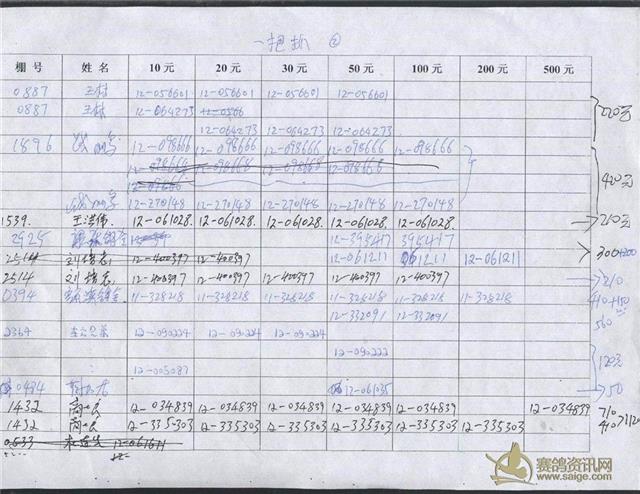 一把抓 ②
棚号 姓名 10元 20元 30元 50元 100元 200元 500元
0887 王林 12-056601 12-056601 12-056601 12-056601
0887 王林 12-064273 12-0566
12-064273 12-064273 12-064273 220元
1896 12-098666 12-098666 12-098666 12-098666 12-098666
12-098668 12-098668 12-098668 12-098668
12-270148 12-270148 12-270148 12-270148 12-270148 420元
1539. 王洪伟 12-061028. 12-061028. 12-061028. 12-061028. 12-061028. 210元
2925 12-395417 395417
2514 12-400397 12-400397 12-061211 061211 12-061211 300+200
2514 12-400397 12-400397 12-400397 12-400397 12-400397 210
0394 11-328218 11-328218 11-328218 11-328218 11-328218 11-328218 410+150
12-332091 12-332091 560
2369 12-090224 12-090224 12-090224
12-090222 120元
12-005087
0494 12-061035 50
1432 12-034839 12-034839 12-034839 12-034839 12-034839 12-034839 710
1432 12-335303 12-335303 12-335303 12-335303 12-335303 12-335303 410 1120
0533 12-061611
赛鸽资讯网
www.saige.com